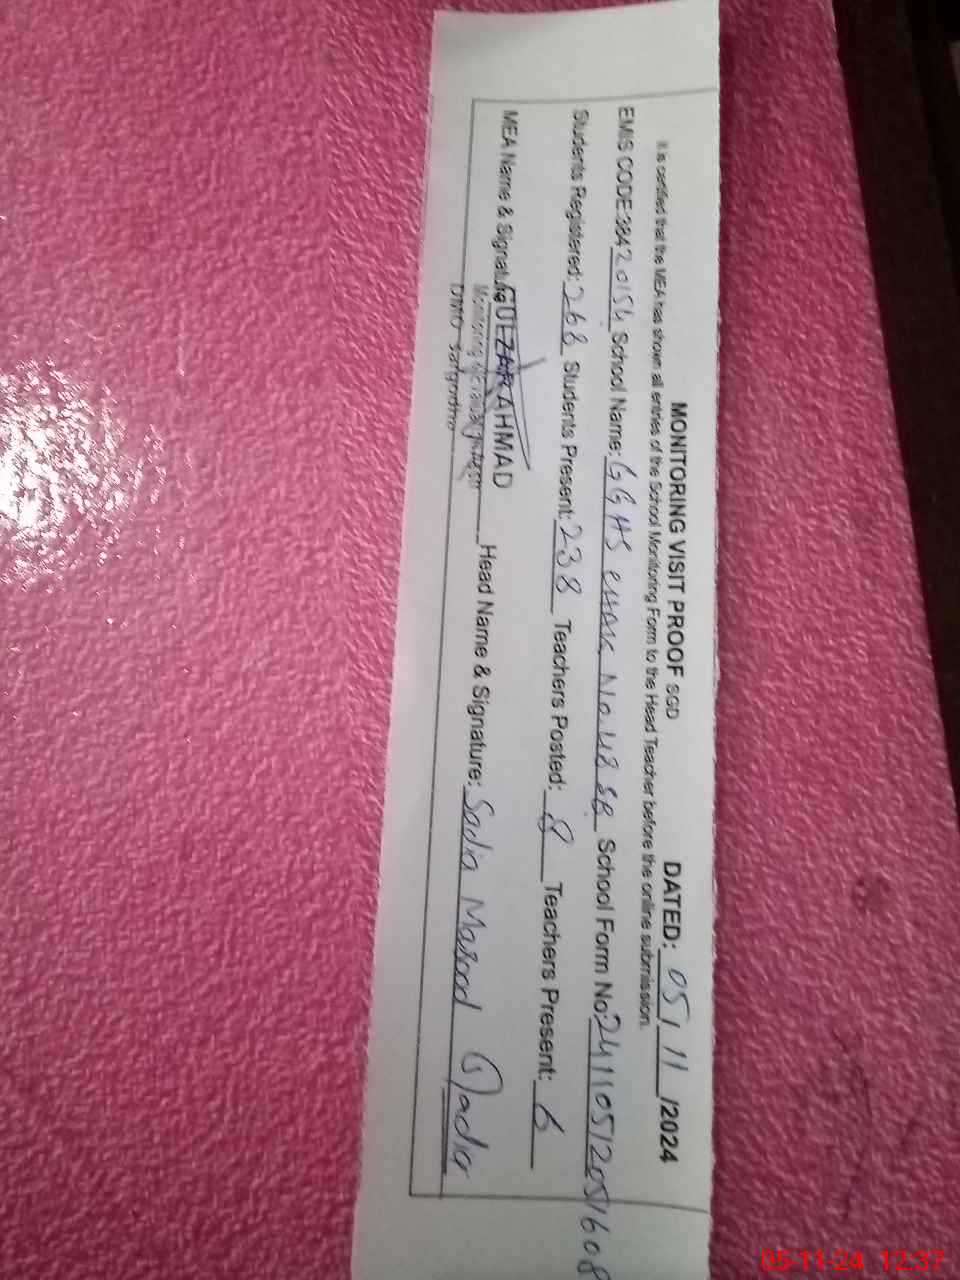 MONITORING VISIT PROOF SGD DATED: 05/11/2024
It is certified that the MEA has shown all entries of the School Monitoring Form to the Head Teacher before the online submission.
EMIS CODE38420154 School Name: GGHS CHAK No. 48 SB School Form No: 24110512051608
Students Registered: 268 Students Present: 238 Teachers Posted: 8 Teachers Present: 6
MEA Name & Signature AHMAD Head Name & Signature: Sadia Masood Sadia
Monitoring
DMO Sargodha
05-11-24 12:37